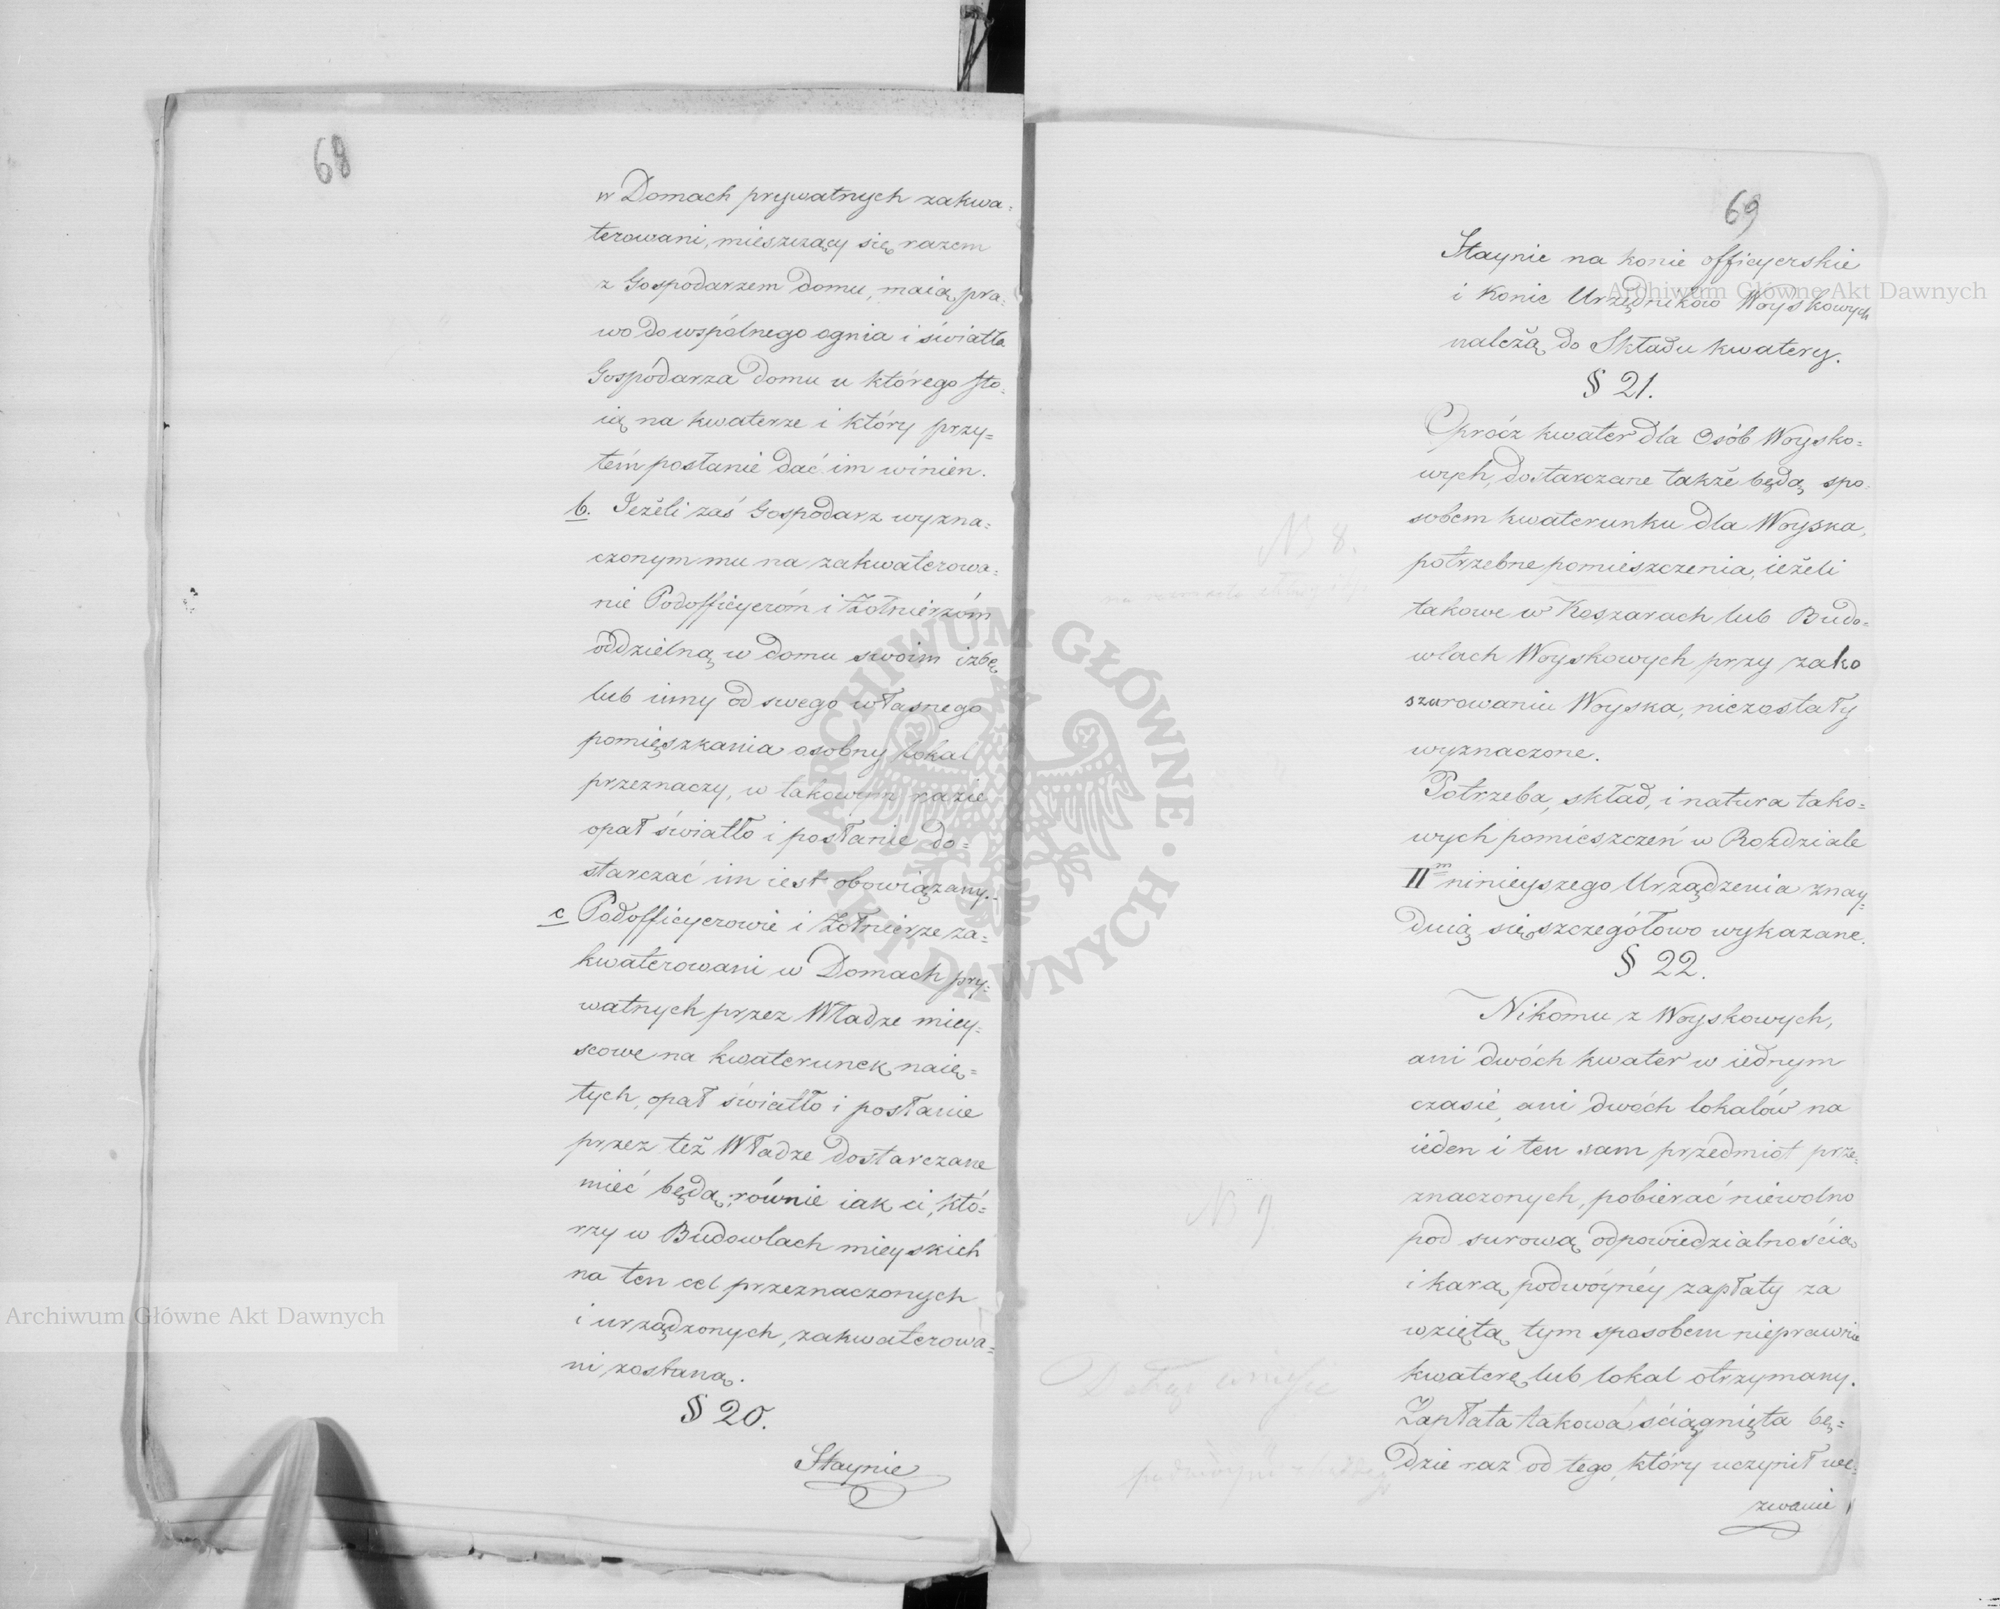 68
w Domach prywatnych zakwa=
terowani, mieszczący się razem
z Gospodarzem domu, maią pra=
wo do wspólnego ognia i światła
Gospodarza domu u którego sto=
ią na kwaterze i który przy=
tém posłanie dać im winien.
b. Jeżeli zaś Gospodarz wyzna=
czonym mu na zakwaterowa=
nie Podofficyerom i Żołnierzom
oddzielną w domu swoim izbę
lub inny od swego własnego
pomięszkania osobny lokal
przeznaczy, w takowym razie
opał światło i posłanie do=
starczać im iest obowiązany.
c Podofficyerowie i Żołnierze za=
kwaterowani w Domach pry=
watnych przez Władze miey=
scowe na kwaterunek naię=
tych, opał światło i posłanie
przez też Władze dostarczane
mieć będą, równie iak ci, któ=
rzy w Budowlach mieyskich
na ten cel przeznaczonych
i urządzonych, zakwaterowa=
ni zostaną.
§ 20.
Staynie
69
Staynie na konie officyerskie
i konie Urzędników Woyskowych
należą do Składu kwatery.
§ 21.
Oprócz kwater dla Osób Woysko=
wych, dostarczane także będą spo=
sobem kwaterunku dla Woyska,
potrzebne pomieszczenia, ieżeli
takowe w Koszarach lub Budo=
wlach Woyskowych przy zako
szarowaniu Woyska, niezostały
wyznaczone.
Potrzeba, skład, i natura tako=
wych pomieszczeń w Rozdziale
II<sup>m</sup> ninieyszego Urządzenia znay=
duią się szczegółowo wykazane.
§ 22.
Nikomu z Woyskowych,
ani dwóch kwater w iednym
czasie, ani dwóch lokalów na
ieden i ten sam przedmiot prze=
znaczonych, pobierać niewolno
pod surową odpowiedzialnością
i karą podwóynéy zapłaty za
wziętą tym sposobem nieprawnie
kwaterę lub lokal otrzymany.
Zapłata takowa ściągnięta bę=
dzie raz od tego, który uczynił we=
zwanie
NB 8.
NB 9
Archiwum Główne Akt Dawnych
Archiwum Główne Akt Dawnych
ARCHIWUM GŁÓWNE · AKT DAWNYCH ·